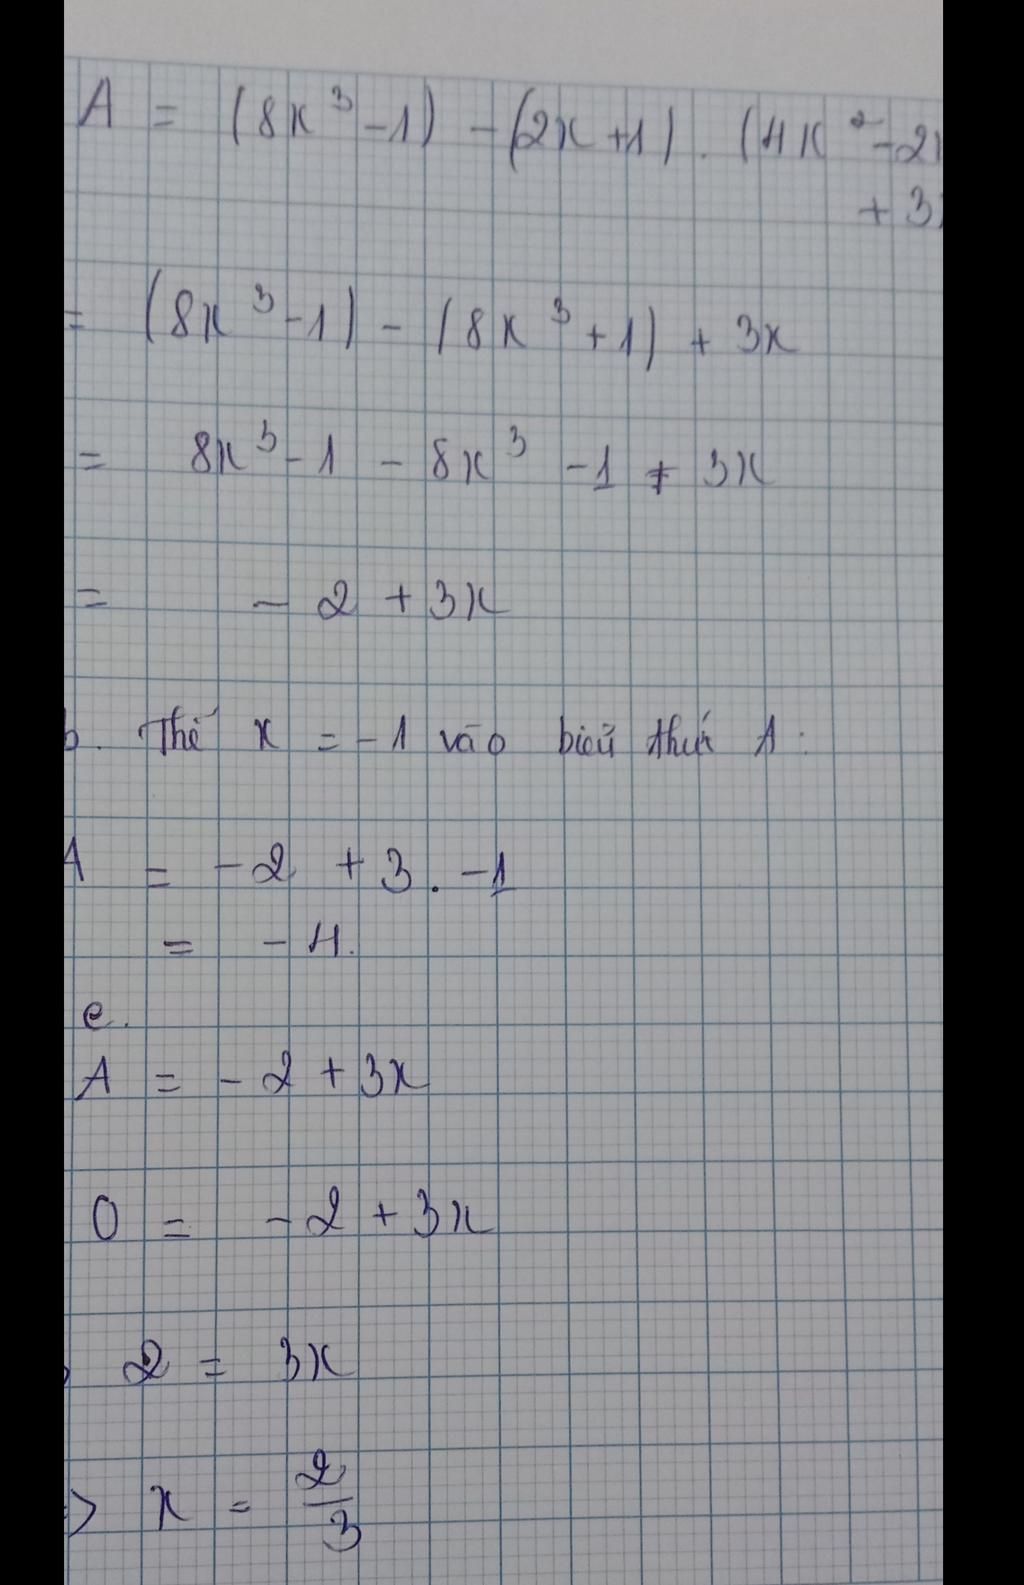 A = (8x³ - 1) - (2x + 1) . (4x² - 2
+ 3
= (8x³ - 1) - (8x³ + 1) + 3x
= 8x³ - 1 - 8x³ - 1 + 3x
= - 2 + 3x
b. Thế x = -1 vào biểu thức A:
A = -2 + 3 . -1
= - 4.
c.
A = -2 + 3x
0 = -2 + 3x
2 = 3x
> x = 2/3